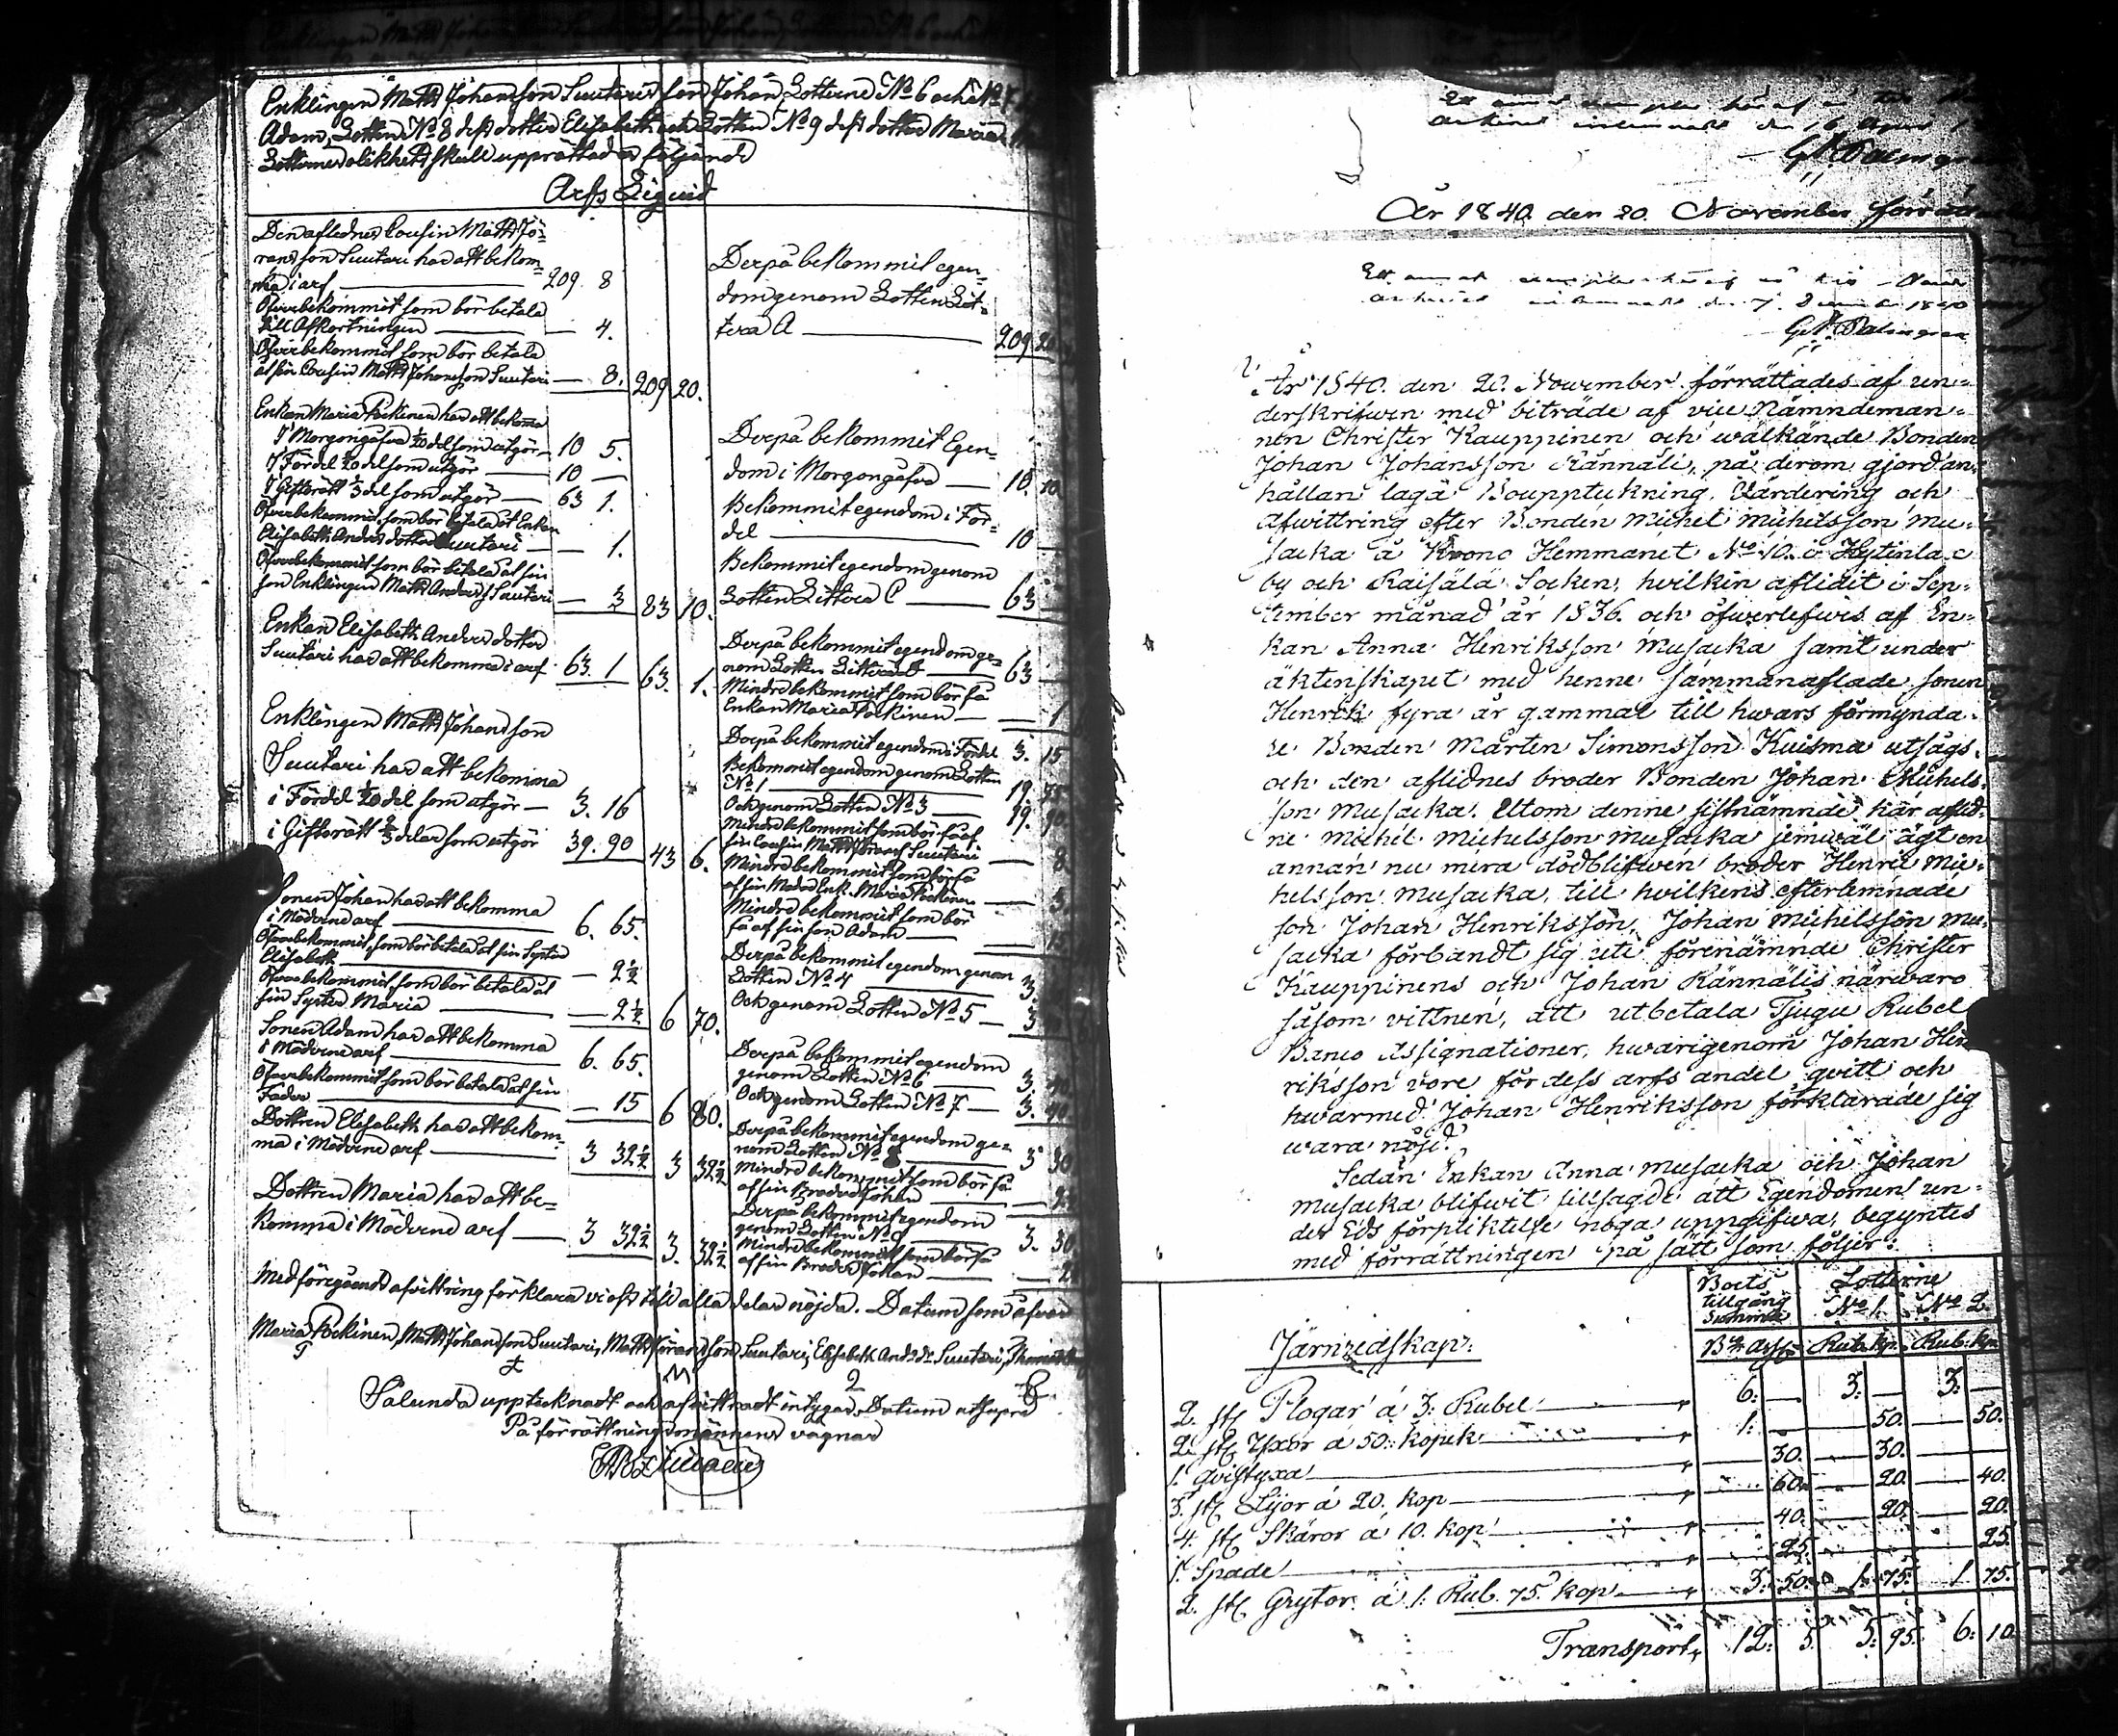 Enklingen Matts Johansson Suutaris son Johan, Lotterne No 6 och No 7
Adam, Lotten No 8 dess dotter Elisabeth och Lotten No 9 dess dotter Maria
Lotternes olikhet skull upprättades följande
Arfs Liquid
Den aflednes Cousin Matts Jö-
ransson Suutari har att bekom-
ma i arf 209. 8
Öfverbekommit som bör betala
till Afkortningen 4.
Öfverbekommit som bör betala
åt sin Cousin Matts Johansson Suutari 8. 209 20.
Derpå bekommit egen-
dom genom Lotten Lit-
tera A 209. 20
Enkan Maria Pöckinen har att bekoma
I Morgongåfva 1/20 del som utgör 10 5.
I Fördel 1/20 del som utgör 10
I Giftorätt 1/3 del som utgör 63 1.
Öfverbekommit, som bör betala åt Enkan
Elisabeth Anders dotter Suutari 1.
Öfverbekommit som bör betala åt sin
son Enklingen Matts Suutari 3 83 10.
Derpå bekommit Egen-
dom i Morgongåfva 10. 10
Bekommit egendom i För-
del 10
Bekommit egendom genom
Lotten Littera C 63
Enkan Elisabeth Anders dotter
Suutari har att bekomma i arf 63. 1 63. 1.
Derpå bekommit egendom ge-
nom Lotten Littera 63
Mindre bekommit som bör få
Enkan Maria Pöckinen 1
Enklingen Matts Johansson
Suutari har att bekomma
i Fördel 1/20 del som utgör 3. 16
i Giftorätt 2/3 delar som utgör 39. 90 43 6.
Derpå bekommit egendom i Fördel 3. 15
Bekommit egendom genom Lotten
No 1 19
Och genom Lotten No 3 19.
Mindre bekommit som bör få af
sin Cousin Matts Suutari 8
Mindre bekommit som bör få
af sin Moder Enk. Maria Pöckinen 3
Mindre bekommit som bör
få af sin son Adam 15
Sonen Johan har att bekomma
i Möderne arf 6. 65.
Öfverbekommit, som bör betala åt sin Syster
Elisabeth 2 1/2
Öfverbekommit, som bör betala åt
sin Syster Maria 2 1/2 6 70.
Derpå bekommit egendom genom
Lotten No 4 3.
Och genom Lotten No 5 3
Sonen Adam har att bekomma
i Möderne arf 6. 65.
Öfverbekommit som bör betala åt sin
Fader 15 6 80.
Derpå bekommit egendom
genom Lotten No 6 3. 40
Och genom Lotten No 7 3. 40
Dottren Elisabeth har att bekom-
ma i Möderne arf 3 32 1/2 3 32 1/2
Derpå bekommit egendom ge-
nom Lotten No 8 3 30
Mindre bekommit som bör få
af sin Broder Johan
Dottren Maria har att be-
komma i Möderne arf 3 32 1/2 3. 32 1/2
Derpå bekommit egendom
genom Lotten No 9 3. 30
Mindre bekommit som bör få
af sin Broder Johan
Med föregående afvittring förklara vi oss till alla delar nöjda. Datum som ofvan
Maria Pöckinen, Matts Johansson Suutari, Matts Göransson Suutari, Elisabeth And: dr Suutari,
Sålunda upptecknadt och afvittradt intygar, Datum ut supra
På förrättningsmännens vägnar
Ett annat
den 16
G. Palmgren
År 1840. den 20. November
Ett annat
den 7. 1840
G. Palmgren
År 1840. den 20. November förrättades af un-
derskrifwen med biträde af vice Nämndeman-
nen Christer Kauppinen och wälkände Bonden
Johan Johansson Rännäli, på derom gjord an-
hållan laga Boupptekning, Värdering och
Afwittring efter Bonden Michel Michelsson Mu-
sacka å Krono Hemmanet No 10. i Hytinlax
by och Raisälä Socken, hvilken aflidit i Sep-
tember månad år 1836. och öfwerlefwis af En-
kan Anna Henriksson Musacka samt under
äktenskapet med henne sammanaflade sonen
Henrik fyra år gammal till hwars förmynda-
re Bonden Mårten Simonsson Kuisma utsågs.
och den aflidnes broder Bonden Johan Michels-
son Musacka. Utom denne sistnämnde har aflid-
ne Michel Michelsson Musacka jemwäl ägt en
annan nu mera dödblifwen broder Henric Mic-
helsson Musacka, till hvilkens efterlemnade
son Johan Henriksson, Johan Michelsson Mu-
sacka förbandt sig uti förenämnde Christer
Kauppinens och Johan Rännälis närwaro
såsom vittnen, att utbetala Tjugu Rubel
Banco Assignationer, hwarigenom Johan Hen
riksson vore för dess arfs andel qvitt och
hwarmed Johan Henriksson förklarade sig
wara nöjd.
Sedan Enkan Anna Musacka och Johan
Musacka blifwit tillsagde att Egendomen un-
der Eds förpliktelse noga uppgifwa, begyntes
med förrättningen på sätt som följer:
Boets tillgång Lotterne
No 1. No 2.
Järnredskap: Bco Assr Rub. kp. Rub. kp.
2. st. Plogar á 3. Rubel 6. — 3. — 3. —
2. st. Yxor á 50. kopek 1. — 50. — 50.
1. Qvistyxa 30. — 30.
3. st. Lijor á 20. kop 60. — 20. — 40.
4. st. Skäror á 10. kop 40. — 20. — 20.
1. Spade 25. 25.
2. st. Grytor á 1. Rub. 75. kop 3. 50. 1. 75. 1. 75.
Transport, 12. 5. 5. 95. 6. 10